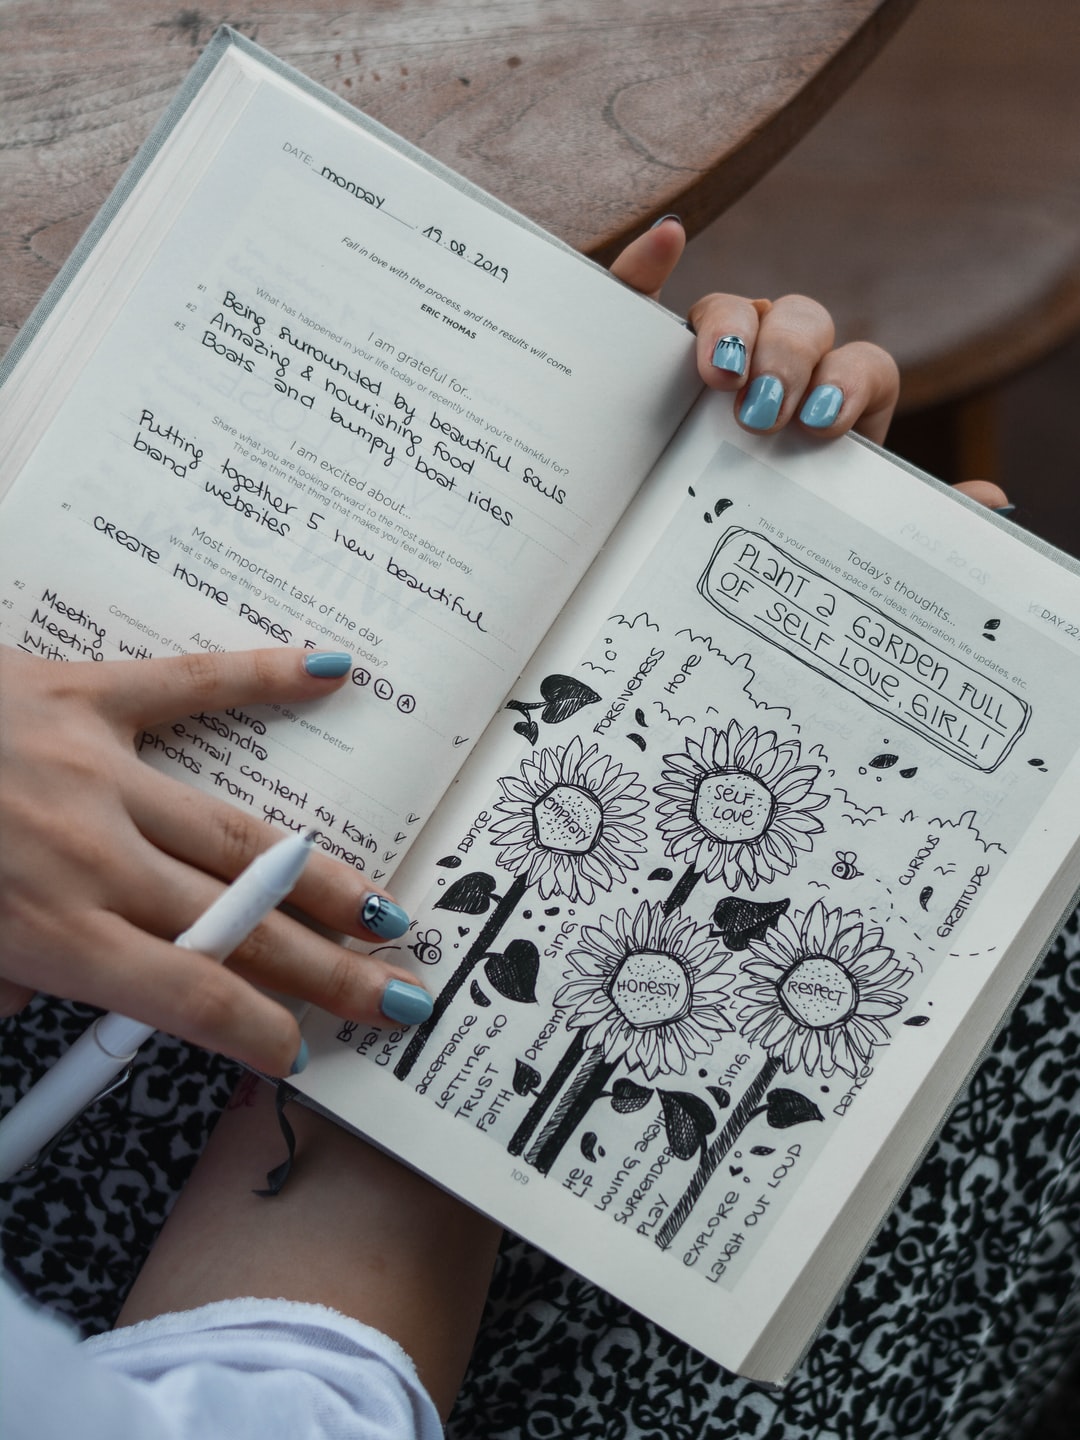 DATE: monday 19.08.2019
Fall in love with the process, and the results will come.
ERIC THOMAS
I am grateful for...
What has happened in your life today or recently that you're thankful for?
#1 Being surrounded by beautiful souls
#2 Amazing & nourishing food
#3 Boats and bumpy boat rides
I am excited about...
Share what you are looking forward to the most about today.
The one thin that thing that makes you feel alive!
Putting together 5 new beautiful
brand websites
Most important task of the day
What is the one thing you must accomplish today?
#1 CREATE HOME PAGES
A L A
Completion of the
day even better!
#2 Meeting with
#3 Meeting
e-mail content for Karin
photos from your camera
DAY 22
Today's thoughts...
This is your creative space for ideas, inspiration, life updates, etc.
PLANT a GARDEN FULL
OF SELF LOVE, GIRL!
FORGIVENESS
HOPE
EMPHATY
SELF
LOVE
DANCE
CURIOUS
GRATITUDE
SING
HONESTY
RESPECT
acceptance
LETTING GO
TRUST
FAITH
DREAM
SING
DANCE
HE
LP
LOVING again
SURRENDER
PLAY
EXPLORE
LAUGH OUT LOUD
109